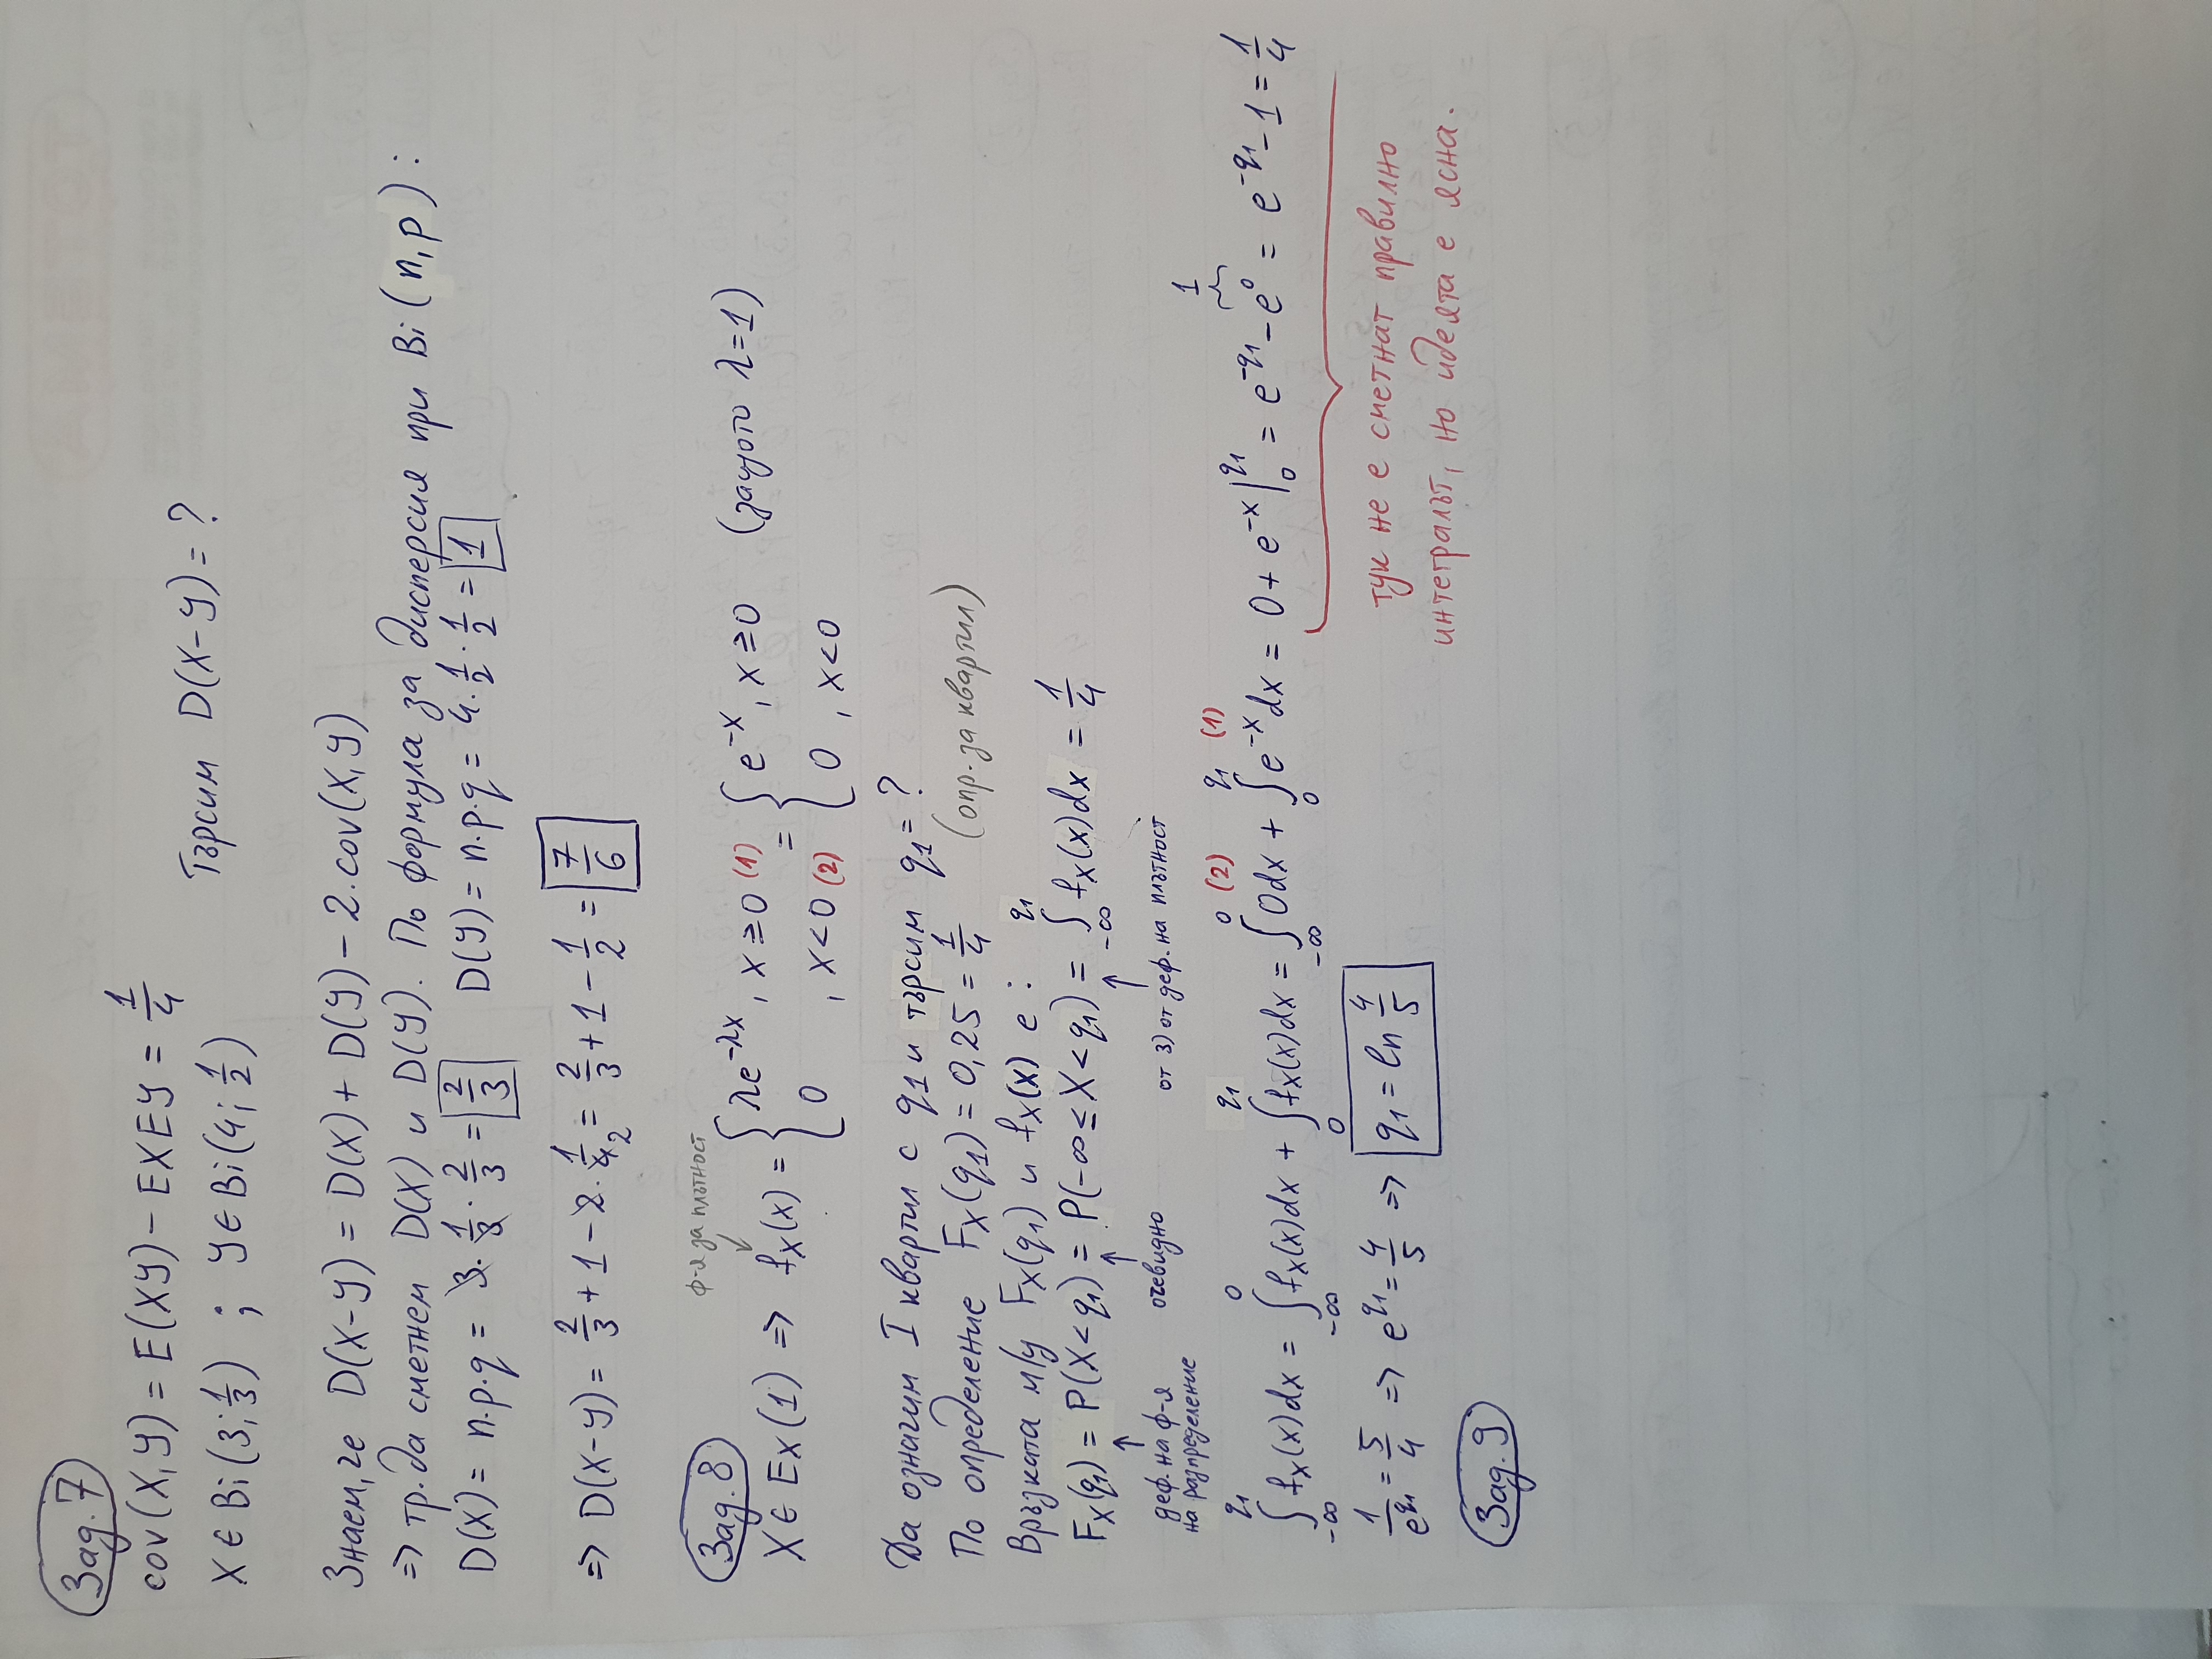 Зад. 7
cov(X,Y) = E(XY) – EXEY = 1/4
X ∈ Bi(3; 1/3) ; Y ∈ Bi(4; 1/2)
Търсим D(X–Y) = ?
Знаем, че D(X–Y) = D(X) + D(Y) – 2.cov(X,Y)
=> тр. да сметнем D(X) и D(Y). По формула за дисперсия при Bi(n,p):
D(X) = n.p.q = 3. 1/3 . 2/3 = 2/3 D(Y) = n.p.q = 4. 1/2 . 1/2 = 1
=> D(X–Y) = 2/3 + 1 – 2. 1/4 2 = 2/3 + 1 – 1/2 = 7/6
Зад. 8
ф-я за плътност
X ∈ Ex(1) => fX(x) = { λe^(-λx), x ≥ 0 (1) = { e^(-x), x ≥ 0 (защото λ=1)
0 , x < 0 (2) 0 , x < 0
Да означим I квартил с q1 и търсим q1 = ?
По определение FX(q1) = 0,25 = 1/4 (опр. за квартил)
Връзката м/у FX(q1) и fX(x) е:
FX(q1) = P(X < q1) = P(-∞ ≤ X < q1) = ∫_{-∞}^{q1} fX(x)dx = 1/4
деф. на ф-я на разпределение
очевидно
от 3) от деф. на плътност
∫_{-∞}^{q1} fX(x)dx = ∫_{-∞}^{0} fX(x)dx + ∫_{0}^{q1} fX(x)dx = ∫_{-∞}^{0} (2) 0dx + ∫_{0}^{q1} (1) e^(-x)dx = 0 + e^(-x)|_{0}^{q1} = e^(-q1) – e^0 = e^(-q1) – 1 = 1/4
1
1/e^(q1) = 5/4 => e^(q1) = 4/5 => q1 = ln 4/5
тук не е сметнат правилно
интегралът, но идеята е ясна.
Зад. 9